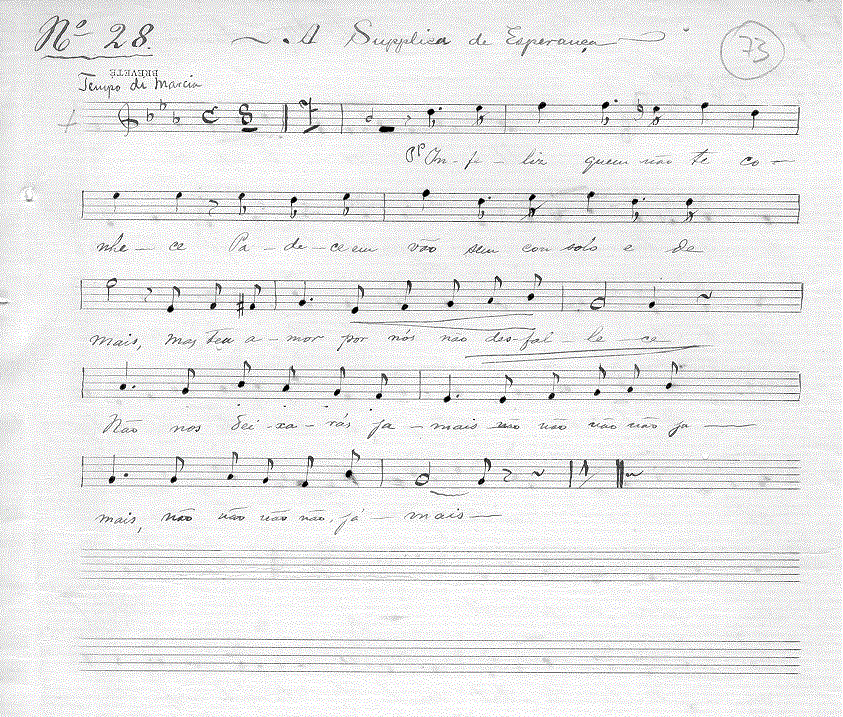 Nº 28. A Supplica de Esperança 73
BREVETÉ
Tempo di Marcia
pp In-fe-liz quem não te co-
nhe-ce Pa-de-ce em vão sem consolo e de
mais, mas teu a-mor por nós não des-fal-le-ce
Não nos dei-xa-rás ja-mais não não não não ja
mais, não não não não, já-mais